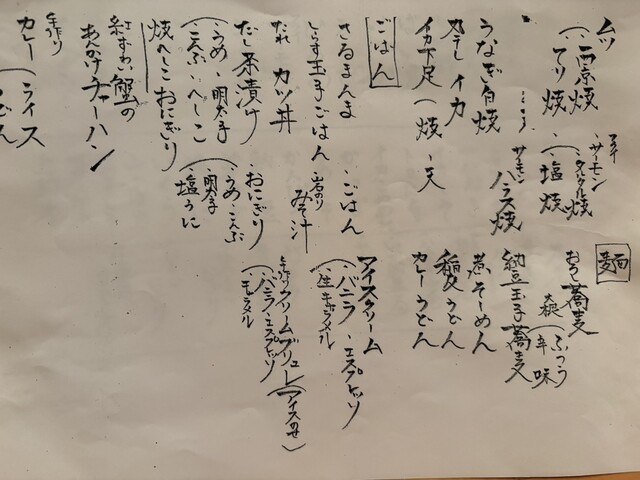 ムツ
(・西京焼
・てり焼
・塩焼
・サーモン
タルタル焼
うなぎ白焼
サーモン
ハラス焼
丸干しイカ
イカ下足(焼・天
麺
おろし蕎麦
(ふつう
辛味
納豆玉子蕎麦
煮そーめん
稲庭うどん
カレーうどん
ごはん
さるまんま
・ごはん
しらす玉子ごはん
岩のり
みそ汁
たれカツ丼
だし茶漬け
(うめ・明太子
こんぶ・へしこ
・おにぎり
(・うめ・こんぶ
・明太子
・塩うに
焼へしこおにぎり
紅ずわい蟹の
あんかけチャーハン
手作り
カレー(ライス
うどん
アイスクリーム
(・バニラ・エスプレッソ
・生キャラメル
手作りクリームブリュレ(アイスのせ)
(・バニラ・エスプレッソ
・キャラメル